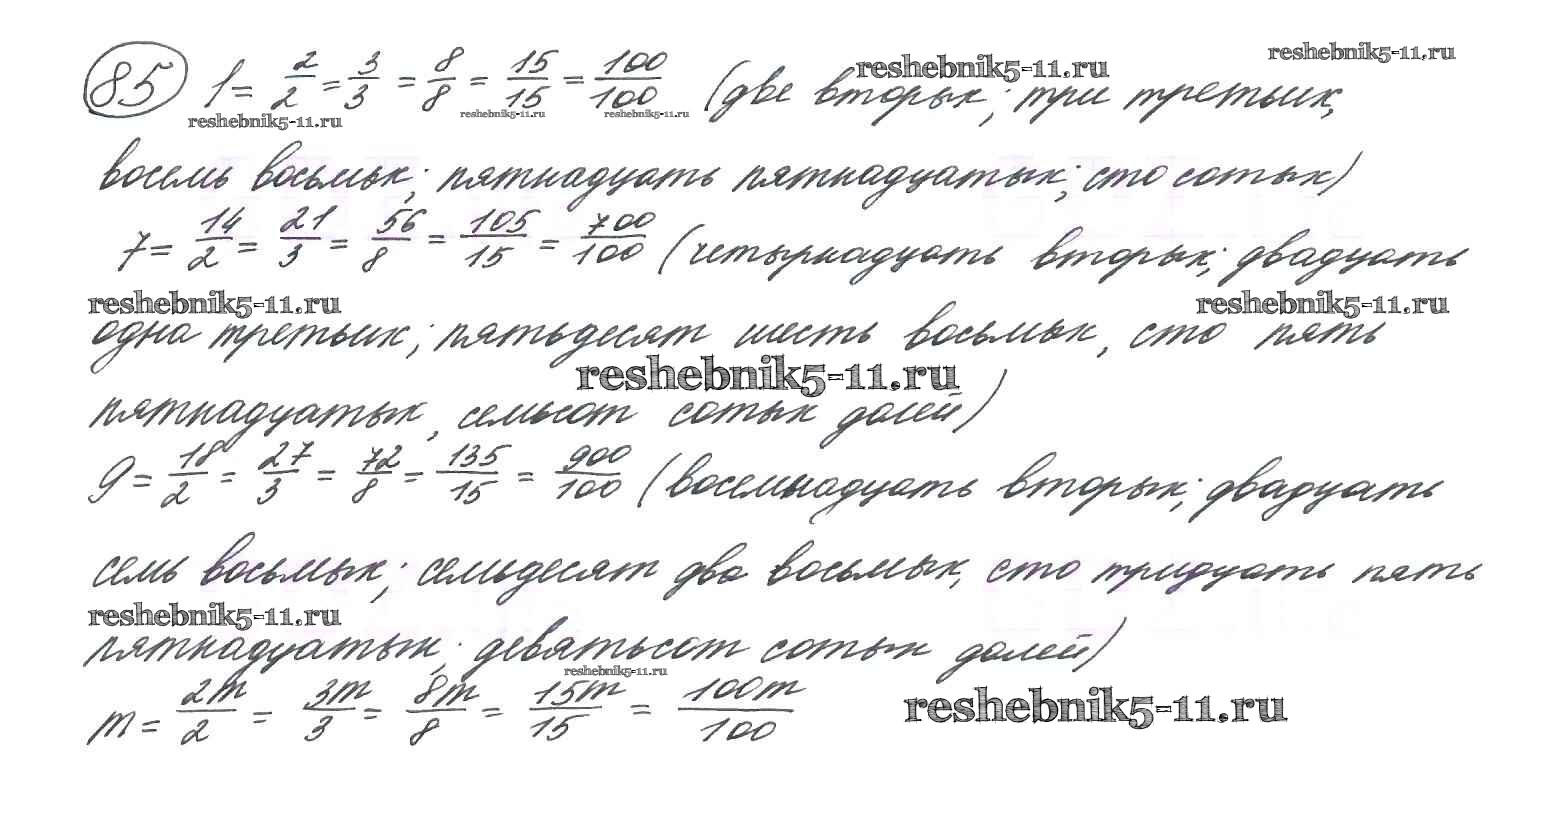 85 1 = 2/2 = 3/3 = 8/8 = 15/15 = 100/100 (две вторых; три третьих,
reshebnik5-11.ru reshebnik5-11.ru reshebnik5-11.ru reshebnik5-11.ru reshebnik5-11.ru
восемь восьмых; пятнадцать пятнадцатых; сто сотых)
7 = 14/2 = 21/3 = 56/8 = 105/15 = 700/100 (четырнадцать вторых; двадцать
reshebnik5-11.ru reshebnik5-11.ru
одна третьих; пятьдесят шесть восьмых, сто пять
reshebnik5-11.ru
пятнадцатых, семьсот сотых долей)
9 = 18/2 = 27/3 = 72/8 = 135/15 = 900/100 (восемнадцать вторых; двадцать
семь восьмых; семьдесят два восьмых, сто тридцать пять
reshebnik5-11.ru
пятнадцатых; девятьсот сотых долей)
reshebnik5-11.ru
m = 2m/2 = 3m/3 = 8m/8 = 15m/15 = 100m/100
reshebnik5-11.ru